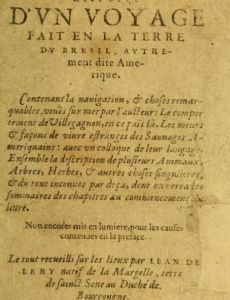 D'VN VOYAGE
FAIT EN LA TERRE
DV BRESIL, AVTRE-
ment dite Ame-
rique.
Contenant la navigation, & choses remar-
quables, veuës sur mer par l'aucteur: Le compor
tement de Villegagnon, en ce païs là. Les meurs
& façons de viure estranges des Sauuages A-
meriquains: auec vn colloque de leur langage.
Ensemble la description de plusieurs Animaux,
Arbres, Herbes, & autres choses singulieres,
& du tout inconues par deça, dont on verra les
sommaires des chapitres au commencement du
liure.
Non encores mis en lumiere, pour les causes
contenues en la preface.
Le tout recueilli sur les lieux par IEAN DE
LERY natif de la Margelle, terre
de sainct Sene au Duché de
Bourgongne.